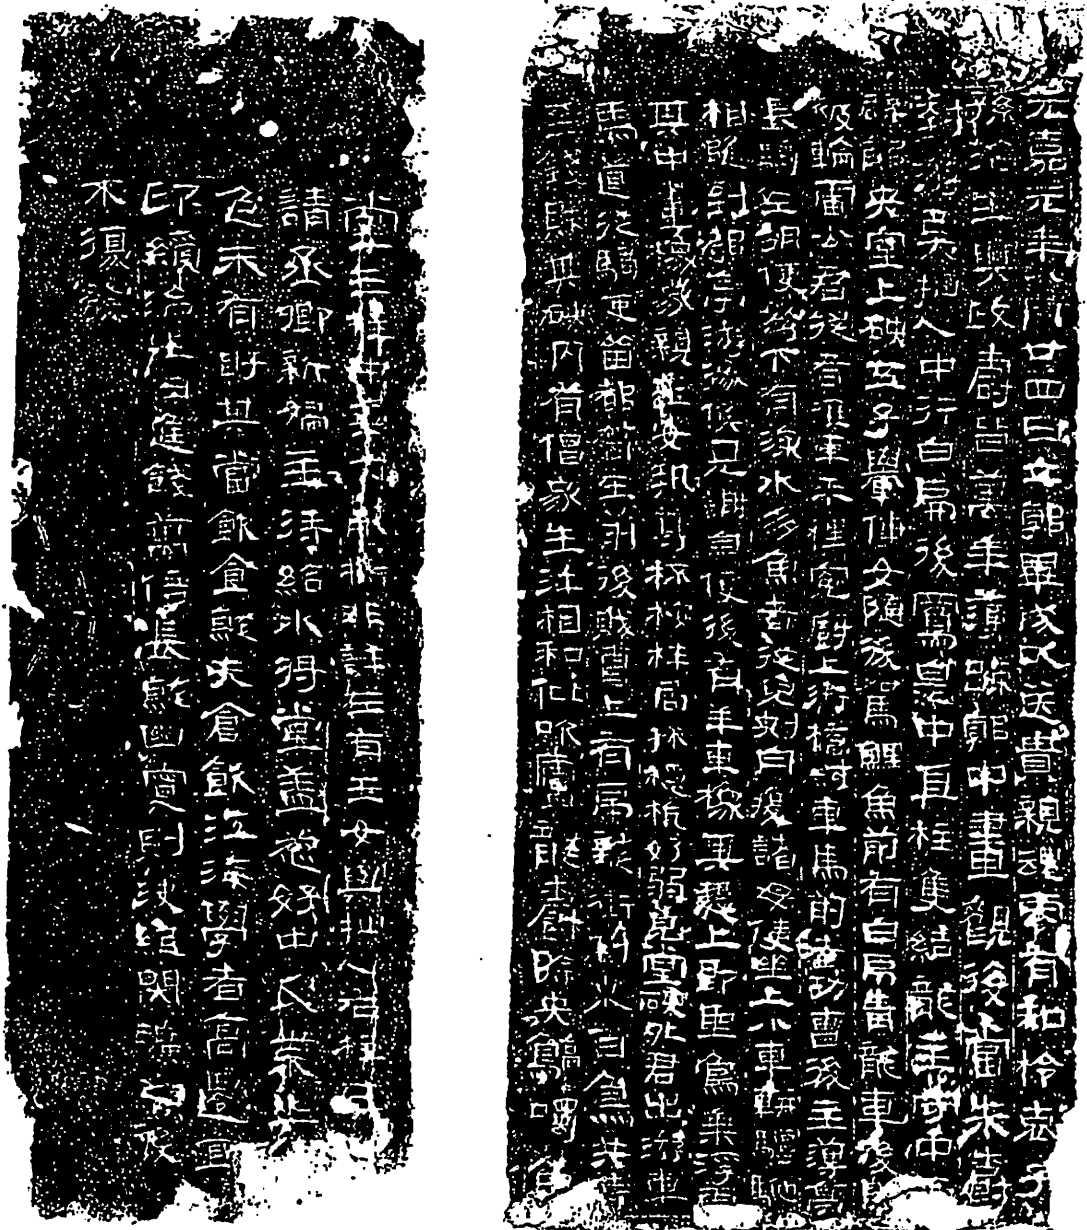 元嘉元年八月廿四日立郭畢成以送貴親魂零有知柃哀子
孫治生興政壽皆萬年薄踈郭中畫觀後當朱爵
對游仙人中行白虎後鳳皇中直柱雙結龍主守中
辟邪央室上硤五子轝僮女隨後駕鯉魚前有白虎青龍車後即
被輪雷公君從者推車乎梩冤厨上衛橋尉車馬前者功曹後主簿亭
長騎佐胡使弩下有深水多魚者從兒刺舟渡諸母使坐上小車軿驅馳
相隨到都亭游徼候見謝自便後有羊車橡其槥上即聖鳥乘浮雲
其中畫橡家親玉女執尊杯桉柈局秫檼杬好弱皃堂硤外君出游車
馬道從騎吏留都督在前後賊曹上有虎龍銜利來百鳥共持
至錢財其硤內有倡家生汙相和仳吹廬龍爵除央鶴噣魚
堂三柱中直龍非詳左有玉女與抽人右柱
請丞卿新婦主待給水將堂蓋葱好中瓜葉上
包末有盱其當飲食就夫倉飲江海學者高遷宜
印綬治生日進錢萬倍長就幽冥則決絕閉曠之後
不復發